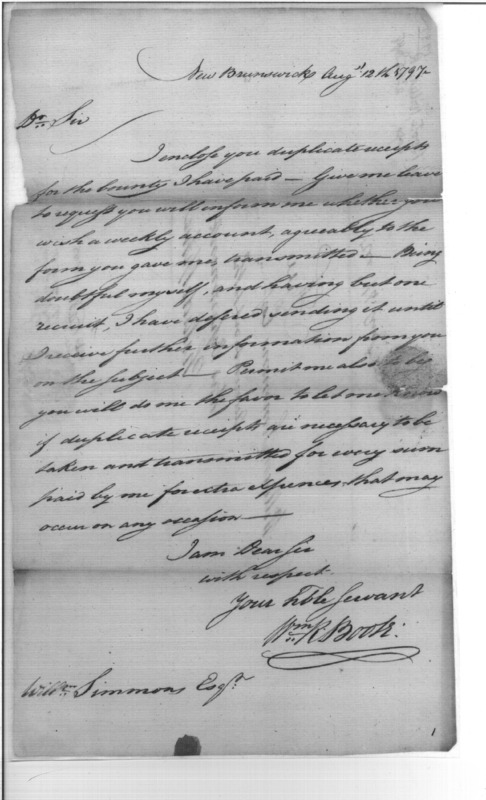 New Brunswick Augst 12th 1797
Dr Sir
I enclose you duplicate receipts
for the bounty I have paid — Give me leave
to request you will inform me whether you
wish a weekly account, agreably to the
form you gave me, transmitted — Being
doubtful myself, and having but one
recruit, I have defered sending it until
I receive further information from you
on the subject — Permit me also to
you will do me the favor to let me know
if duplicate receipts are necessary to be
taken and transmitted for every sum
paid by me for extra expences that may
occur on any occasion —
I am Dear Sir
with respect
Your Hble Servant
Wm R. Boote.
Willm Simmons Esqr
1